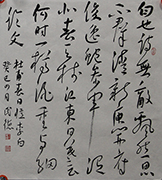 白也詩無敵飄然思
不群清新庾開府
俊逸鮑參軍渭
北春天樹江東日暮雲
何時一樽酒重與細
論文
杜甫春日憶李白
癸巳四月